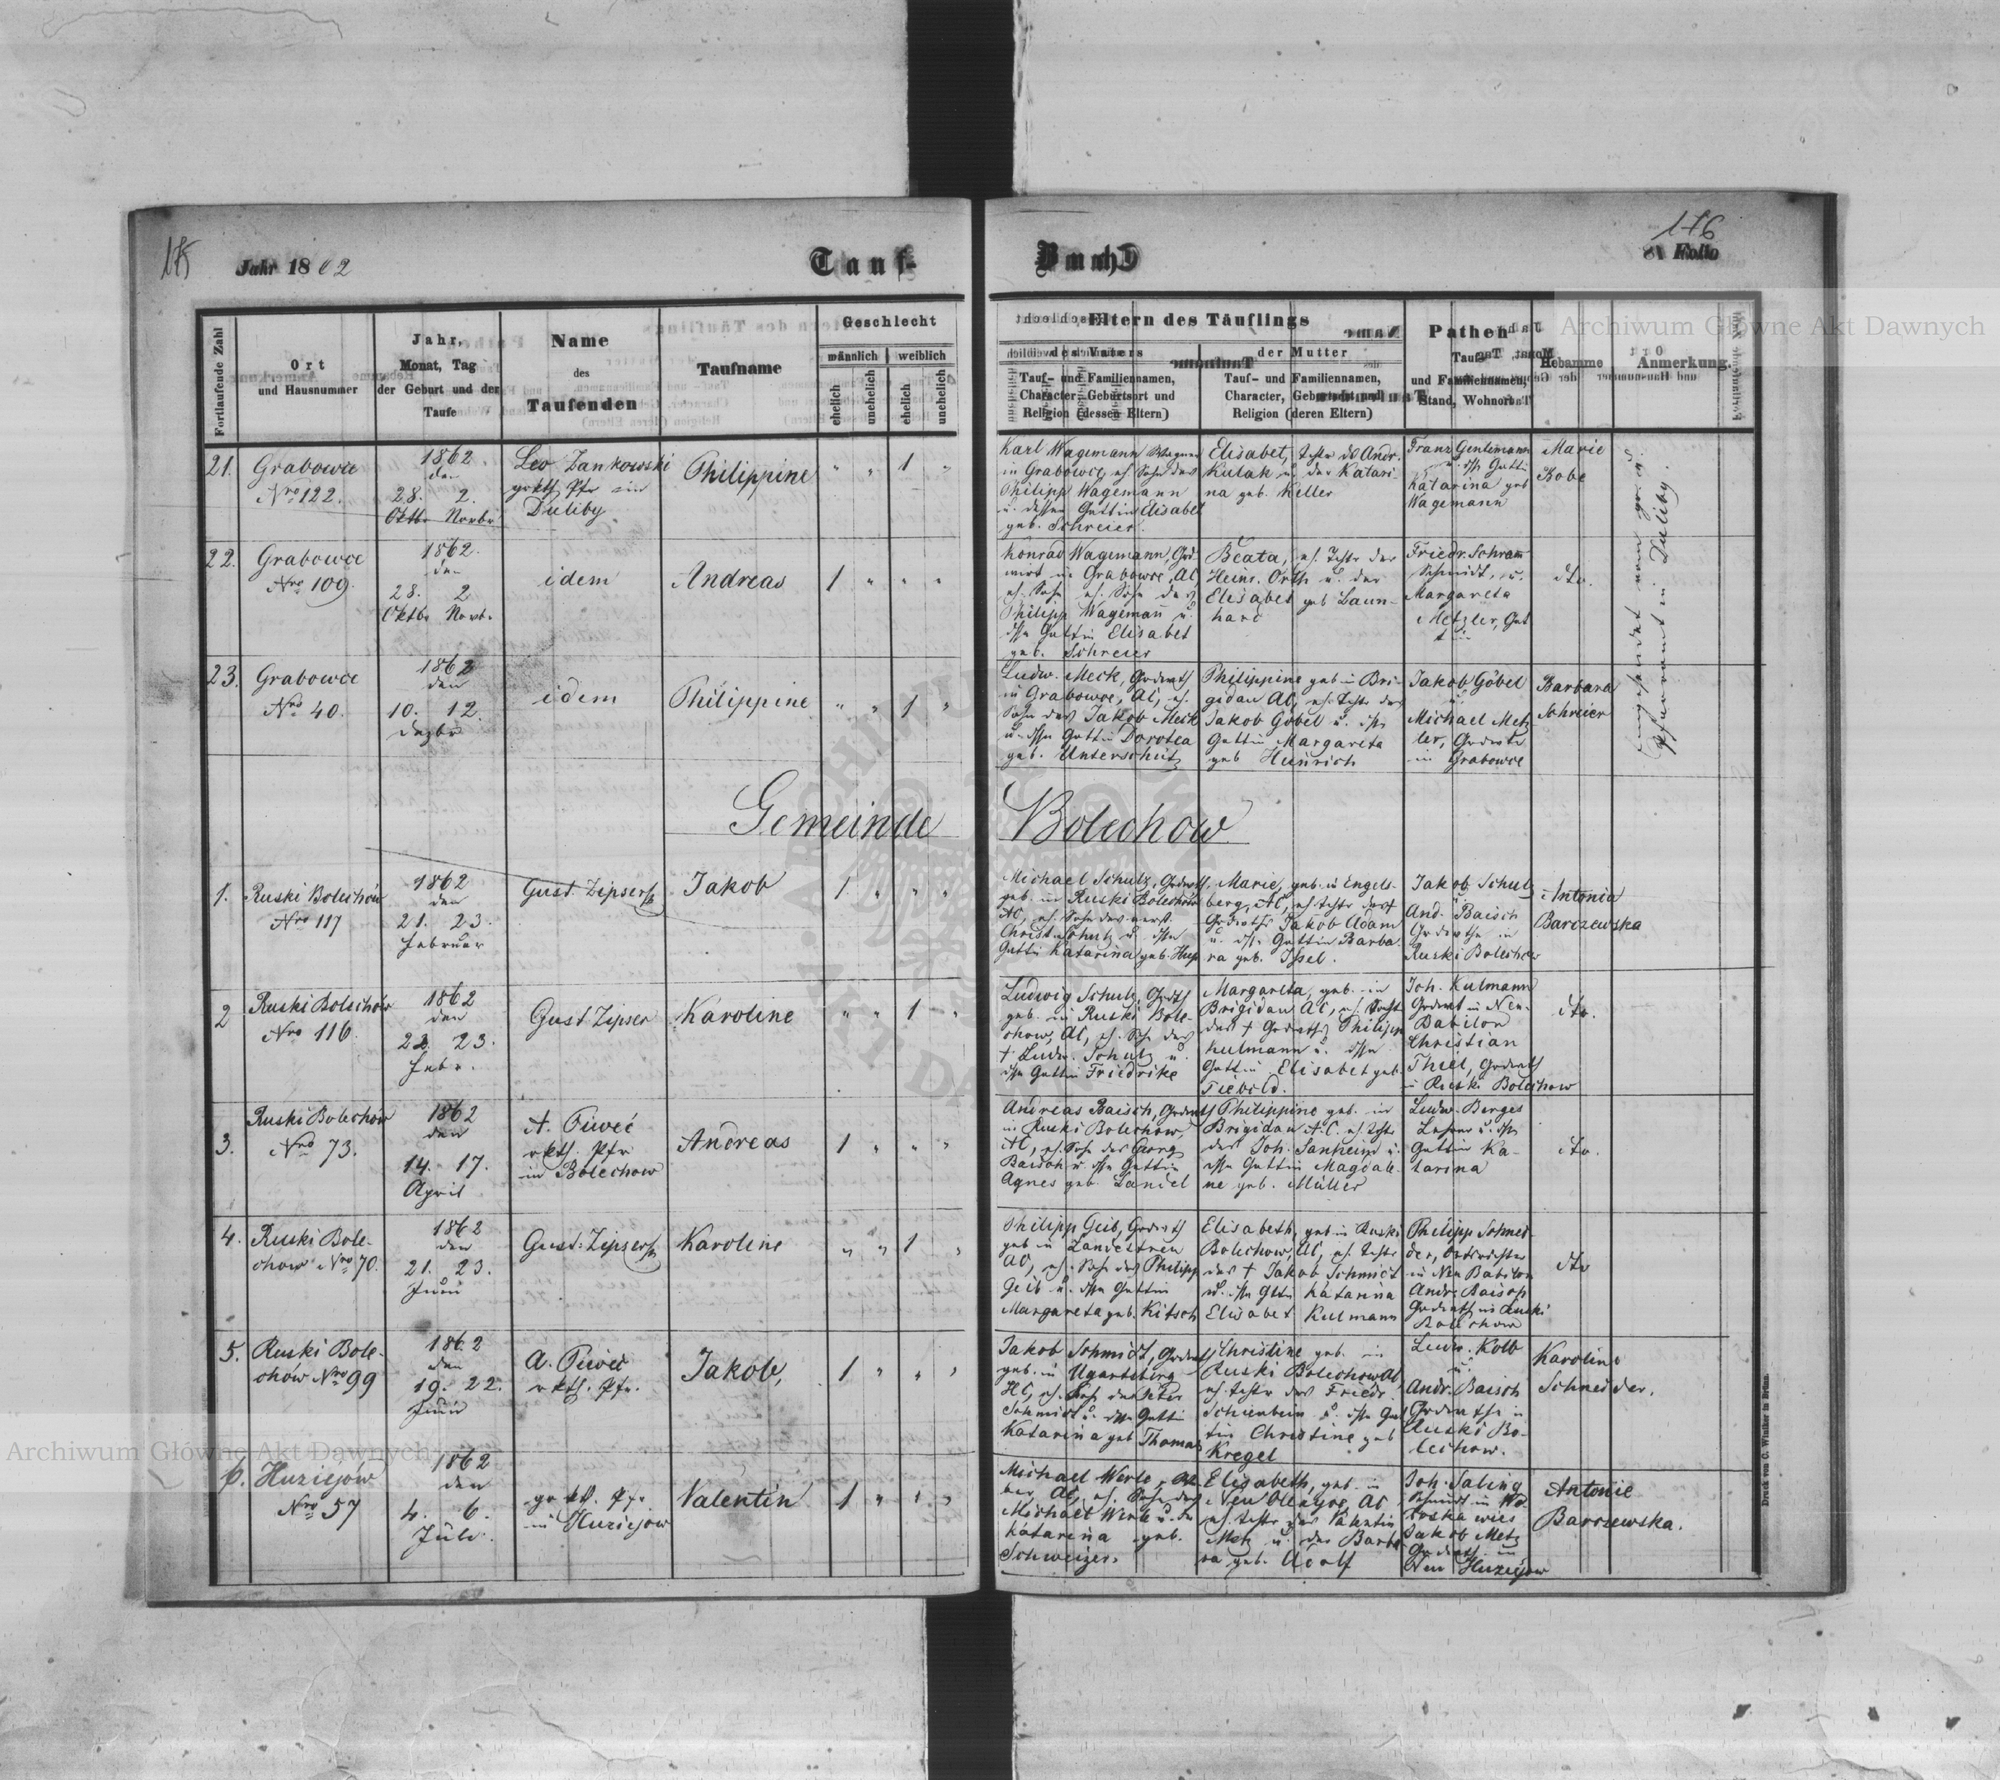 175
Jahr 1862
Tauf-
Buch
176
Folio
Fortlaufende Zahl
Ort
und Hausnummer
Jahr,
Monat, Tag
der Geburt und der
Taufe
Name
des
Taufenden
Taufname
Geschlecht
männlich
weiblich
ehelich
unehelich
ehelich
unehelich
Eltern des Täuflings
des Vaters
der Mutter
Tauf- und Familiennamen,
Character, Geburtsort und
Religion (dessen Eltern)
Tauf- und Familiennamen,
Character, Geburtsort und
Religion (deren Eltern)
Pathen
Tauf-
und Familiennamen,
Stand, Wohnort
Hebamme
Anmerkung.
21.
Grabowce
Nro 122.
1862
den
28. 2.
Oktbr Novbr
Leo Zankowski
grkth. Pfr in
Duliby
Philippine
" " 1 "
Karl Wagemann
in Grabowce, eh. Sohn des
Philipp Wagemann
u. dessen Gattin Elisabet
geb. Schreier.
Elisabet, Tchtr d. Andr.
Kulak u. der Katari-
na geb. Keller
Franz Gentimann
u. dssn Gattin
Katarina geb
Wagemann
Marie
Bobe
22.
Grabowce
Nro 109.
1862.
den
28. 2
Oktbr Novbr.
idem
Andreas
1 " " "
Konrad Wagemann, Grd-
wirt in Grabowce, AC,
eh. Sohn des
Philipp Wagemann u.
dssn Gattin Elisabet
geb. Schreier
Beata, eh. Tchtr der
Heinr. Orth u. der
Elisabet geb Laun-
hard
Friedr. Schram
Schmidt, u.
Margareta
Metzler, Gat
tin
dto.
23.
Grabowce
Nro 40.
1862
den
10. 12.
Dezbr
idem
Philippine
" " 1 "
Ludw. Meck, Grdwrth
in Grabowce, AC, eh.
Sohn des Jakob Meck
u. dssn Gattin Dorotea
geb. Unterschütz
Philippine geb in Bri-
gidau AC, eh. Tchtr des
Jakob Göbel u. dssn
Gattin Margareta
geb Heinrich
Jakob Göbel
u.
Michael Metz
ler, Grdwrte
in Grabowce
Barbara
Schreier
eingesendet vom gr. k.
Pfarramt in Duliby.
Gemeinde Bolechow
1.
Ruski Bolechów
Nro 117
1862
den
21. 23.
Februar
Gust. Zipser
Jakob
1 " " "
Michael Schulz, Grdwrth,
geb. in Ruski Bolechow
AC, eh. Sohn des verst.
Christ. Schulz u. dssn
Gattin Katarina geb. Hup
Marie, geb. in Engels-
berg, AC, eh. Tchtr des
Grdwrths Jakob Adam
u. dssn Gattin Barba-
ra geb. Issel.
Jakob Schulz
u.
And. Baisch
Grdwrthe in
Ruski Bolechow
Antonia
Barczewska
2
Ruski Bolechów
Nro 116.
1862
den
22. 23.
Febr.
Gust Zipser
Karoline
" " 1 "
Ludwig Schulz, Grdwrth
geb. in Ruski Bole-
chow, AC, eh. Sohn des
† Ludw. Schulz u.
dssn Gattin Friedrike
Margareta, geb. in
Brigidau AC, eh. Tocht
des † Grdwrths Philipp
Kulmann u. dssn
Gattin Elisabet geb.
Tiebold.
Joh. Kulmann
Grdwrt in Neu-
Babilon
Christian
Thiel, Grdwrth
in Ruski Bolechow
dto.
3.
Ruski Bolechów
Nro 73.
1862
den
14. 17.
April
A. Piweć
rkth. Pfr
in Bolechow
Andreas
1 " " "
Andreas Baisch, Grdwrth
in Ruski Bolechow,
AC, eh. Sohn des Georg
Baisch u. dssn Gattin
Agnes geb. Daniel
Philippine geb. in
Brigidau A.C. eh. Tchtr
des Joh. Sanheim u.
dssn Gattin Magdale
ne geb. Müller
Ludw. Berges
Lehrer u. dssn
Gattin Ka-
tarina
dto.
4.
Ruski Bole-
chow Nro 70.
1862
den
21. 23.
Juni
Gust. Zipser
Karoline
" " 1 "
Philipp Geib, Grdwrth
geb in Landestreu
AC, eh. Sohn des Philipp
Geib u. dssn Gattin
Margareta geb. Kitsch
Elisabeth, geb in Ruski
Bolechow, AC, eh. Tchtr
des † Jakob Schmidt
u. dssn Gttn Katarina
Elisabet Kulmann
Philipp Schmed-
der, Ortsrichter
in Neu Babilon
Andr. Baisch
Grdwrth in Ruski
Bolechow
dto
5.
Ruski Bole-
chów Nro 99
1862
den
19. 22.
Juni
A. Piweć
rkth. Pfr.
Jakob,
1 " " "
Jakob Schmidt, Grdwrth
geb. in Ugartsberg
HC, eh. Sohn des Ptr
Schmidt u. dssn Gattin
Katarina geb Thomas
Christine geb. in
Ruski Bolechow AC
eh. Tchtr des Friedr.
Schienbein u. dssn Gat
tin Christine geb
Kregel
Ludw. Kolb
u.
Andr. Baisch
Grdwrthe in
Ruski Bo-
lechow.
Karoline
Schneider.
6.
Huziejów
Nro 57
1862
den
4. 6.
Juli.
gr kth. Pfr.
in Huziejow
Valentin
1 " " "
Michael Werle,
AC, eh. Sohn des
Michael Werle u. der
Katarina geb.
Schweizer.
Elisabeth, geb. in
Neu Olexyce, AC
eh. Tchtr des Valentin
Metz u. der Barba
ra geb. Adolf
Joh. Saling
Schmidt in Wo-
loska wies
Jakob Metz
Grdwrth in
Neu Huziejow
Antonie
Barczewska.
Druck von C. Winiker in Brünn.
Archiwum Główne Akt Dawnych
Archiwum Główne Akt Dawnych